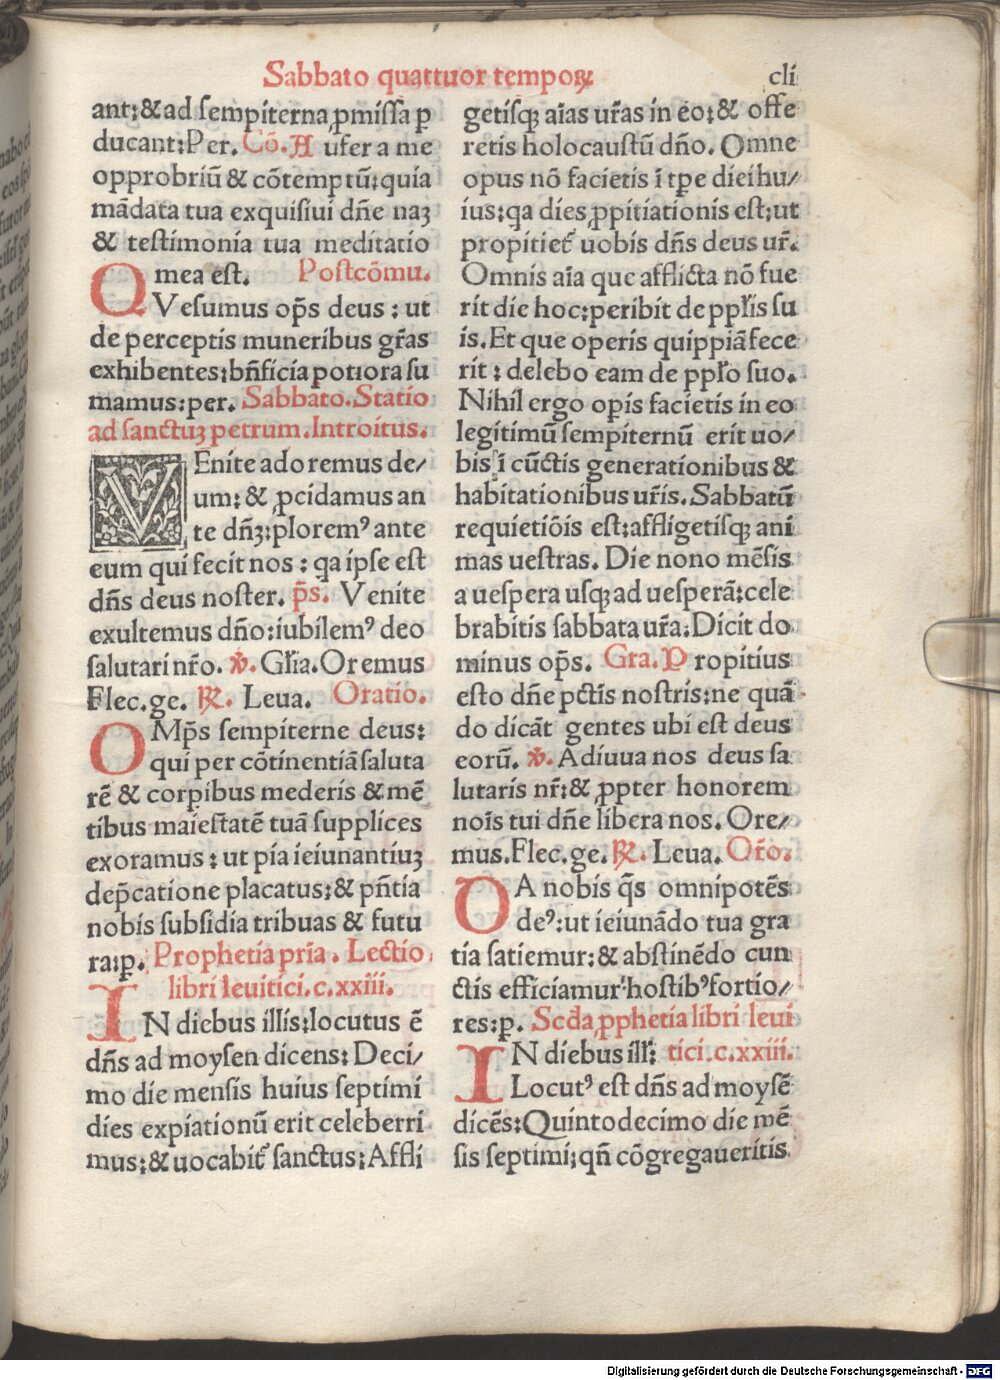 Sabbato quattuor temporꝝ
cli
ant:&ad ſempiterna ꝓmiſſa ꝑ
ducant:Per. Cō. A ufer a me
opprobriū & cōtemptū:quia
mādata tua exquiſiui dn̄e naꝫ
& teſtimonia tua meditatio
mea eſt. Poſtcōmu.
QVeſumus op̄s deus : ut
de perceptis muneribus gr̄as
exhibentes:bn̄ficia potiora ſu
mamus:per. Sabbato.Statio
ad ſanctuꝫ petrum.Introitus.
VEnite adoremus de/
um: & ꝓcidamus an
te dn̄ꝫ:ploremꝰ ante
eum qui fecit nos : qa ipſe eſt
dn̄s deus noſter. p̄s. Venite
exultemus dn̄o:iubilemꝰ deo
ſalutari nr̄o. ℣. Gl̄ia.Oremus
Flec.ge. ℟. Leua. Oratio.
OMp̄s ſempiterne deus:
qui per cōtinentiā ſaluta
rē & corpibus mederis & mē
tibus maieſtatē tuā ſupplices
exoramus : ut pia ieiunantiuꝫ
dep̄catione placatus:& pn̄tia
nobis ſubſidia tribuas & futu
ra:p. Prophetia prīa. Lectio
libri leuitici.c.xxiii.
IN diebus illis:locutus ē
dn̄s ad moyſen dicens: Deci/
mo die menſis huius ſeptimi
dies expiationū erit celeberri
mus:& uocabit̄ ſanctus:Affli
getiſqꝫ aīas ur̄as in eo:& offe
retis holocauſtū dn̄o. Omne
opus nō facietis ī tꝑe diei hu/
ius:qa dies ꝓpitiationis eſt:ut
propitiet̄ uobis dn̄s deus ur̄.
Omnis aīa que afflicta nō fue
rit die hoc:peribit de ppl̄is ſu
is.Et que operis quippiā fece
rit : delebo eam de ppl̄o ſuo.
Nihil ergo opis facietis in eo
legitimū ſempiternū erit uo/
bis ī cūctis generationibus &
habitationibus ur̄is.Sabbatū
requietiōis eſt:affligetiſqꝫ ani
mas ueſtras. Die nono mēſis
a ueſpera uſqꝫ ad ueſperā:cele
brabitis ſabbata ur̄a.Dicit do
minus op̄s. Gra. P ropitius
eſto dn̄e pctīs noſtris:ne quā
do dicāt gentes ubi eſt deus
eorū. ℣. Adiuua nos deus ſa
lutaris nr̄:& ꝓpter honorem
noīs tui dn̄e libera nos. Ore/
mus.Flec.ge. ℟. Leua. Or̄o.
DA nobis q̄s omnipotēs
deꝰ:ut ieiunādo tua gra
tia ſatiemur:& abſtinēdo cun
ctis efficiamur hoſtibꝰ fortio/
res:p. Scd̄a ꝓphetia libri leui
tici.c.xxiii.
IN diebus ill̄:
Locutꝰ eſt dn̄s ad moyſē
dicēs:Quintodecimo die mē
ſis ſeptimi:qn̄ cōgregaueritis
Digitalisierung gefördert durch die Deutsche Forschungsgemeinschaft - DFG